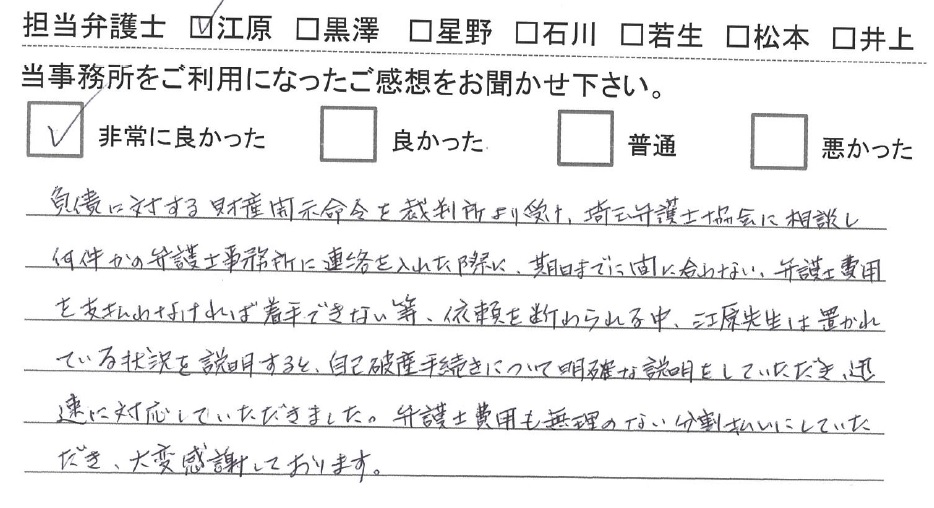 担当弁護士 ☑江原 □黒澤 □星野 □石川 □若生 □松本 □井上
当事務所をご利用になったご感想をお聞かせ下さい。
☑ 非常に良かった □ 良かった □ 普通 □ 悪かった
負債に対する財産開示命令を裁判所より受け、埼玉弁護士協会に相談し
何件かの弁護士事務所に連絡を入れた際に、期日までに間に合わない、弁護士費用
を支払わなければ着手できない等、依頼を断わられる中、江原先生は置かれ
ている状況を説明すると、自己破産手続きについて明確な説明をしていただき、迅
速に対応していただきました。弁護士費用も無理のない分割払いにしていた
だき、大変感謝しております。